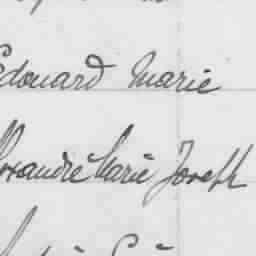 Edouard Marie
Alexandre Marie Joseph